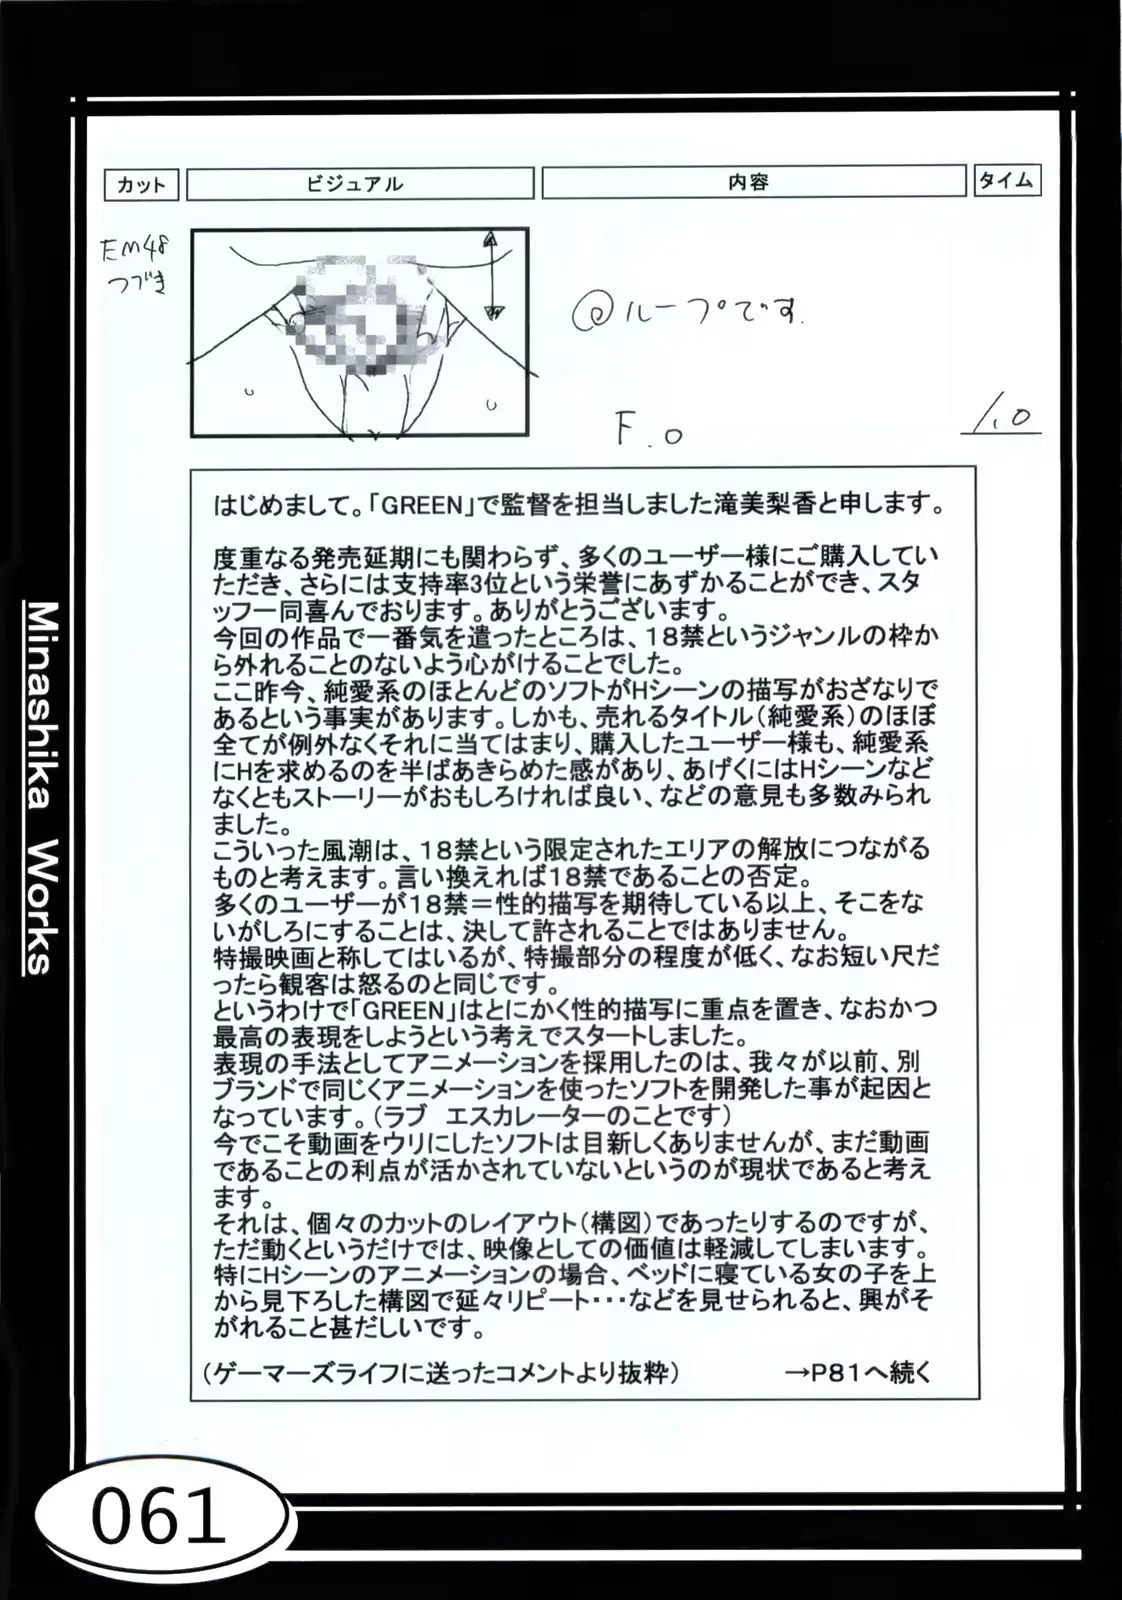 カット ビジュアル 内容 タイム
EM48
つづき
@ループです.
F.O
1.0
はじめまして。「GREEN」で監督を担当しました滝美梨香と申します。
度重なる発売延期にも関わらず、多くのユーザー様にご購入してい
ただき、さらには支持率3位という栄誉にあずかることができ、スタ
ッフ一同喜んでおります。ありがとうございます。
今回の作品で一番気を遣ったところは、18禁というジャンルの枠か
ら外れることのないよう心がけることでした。
ここ昨今、純愛系のほとんどのソフトがHシーンの描写がおざなりで
あるという事実があります。しかも、売れるタイトル(純愛系)のほぼ
全てが例外なくそれに当てはまり、購入したユーザー様も、純愛系
にHを求めるのを半ばあきらめた感があり、あげくにはHシーンなど
なくともストーリーがおもしろければ良い、などの意見も多数みられ
ました。
こういった風潮は、18禁という限定されたエリアの解放につながる
ものと考えます。言い換えれば18禁であることの否定。
多くのユーザーが18禁＝性的描写を期待している以上、そこをな
いがしろにすることは、決して許されることではありません。
特撮映画と称してはいるが、特撮部分の程度が低く、なお短い尺だ
ったら観客は怒るのと同じです。
というわけで「GREEN」はとにかく性的描写に重点を置き、なおかつ
最高の表現をしようという考えでスタートしました。
表現の手法としてアニメーションを採用したのは、我々が以前、別
ブランドで同じくアニメーションを使ったソフトを開発した事が起因と
なっています。(ラブ エスカレーターのことです)
今でこそ動画をウリにしたソフトは目新しくありませんが、まだ動画
であることの利点が活かされていないというのが現状であると考え
ます。
それは、個々のカットのレイアウト(構図)であったりするのですが、
ただ動くというだけでは、映像としての価値は軽減してしまいます。
特にHシーンのアニメーションの場合、ベッドに寝ている女の子を上
から見下ろした構図で延々リピート･･･などを見せられると、興がそ
がれること甚だしいです。
(ゲーマーズライフに送ったコメントより抜粋) →P81へ続く
Minashika Works
061